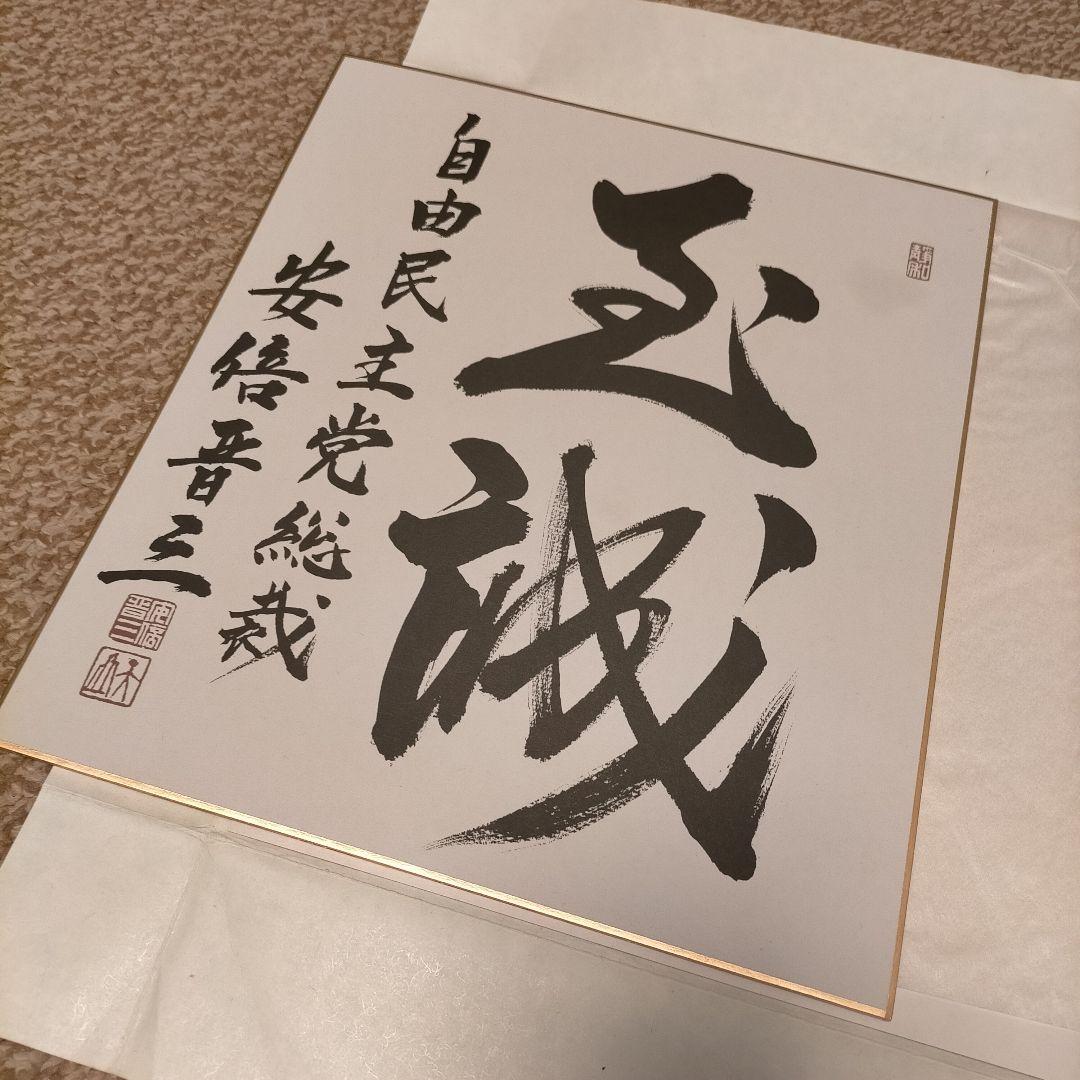 至誠
自由民主党総裁
安倍晋三
安倍晋三